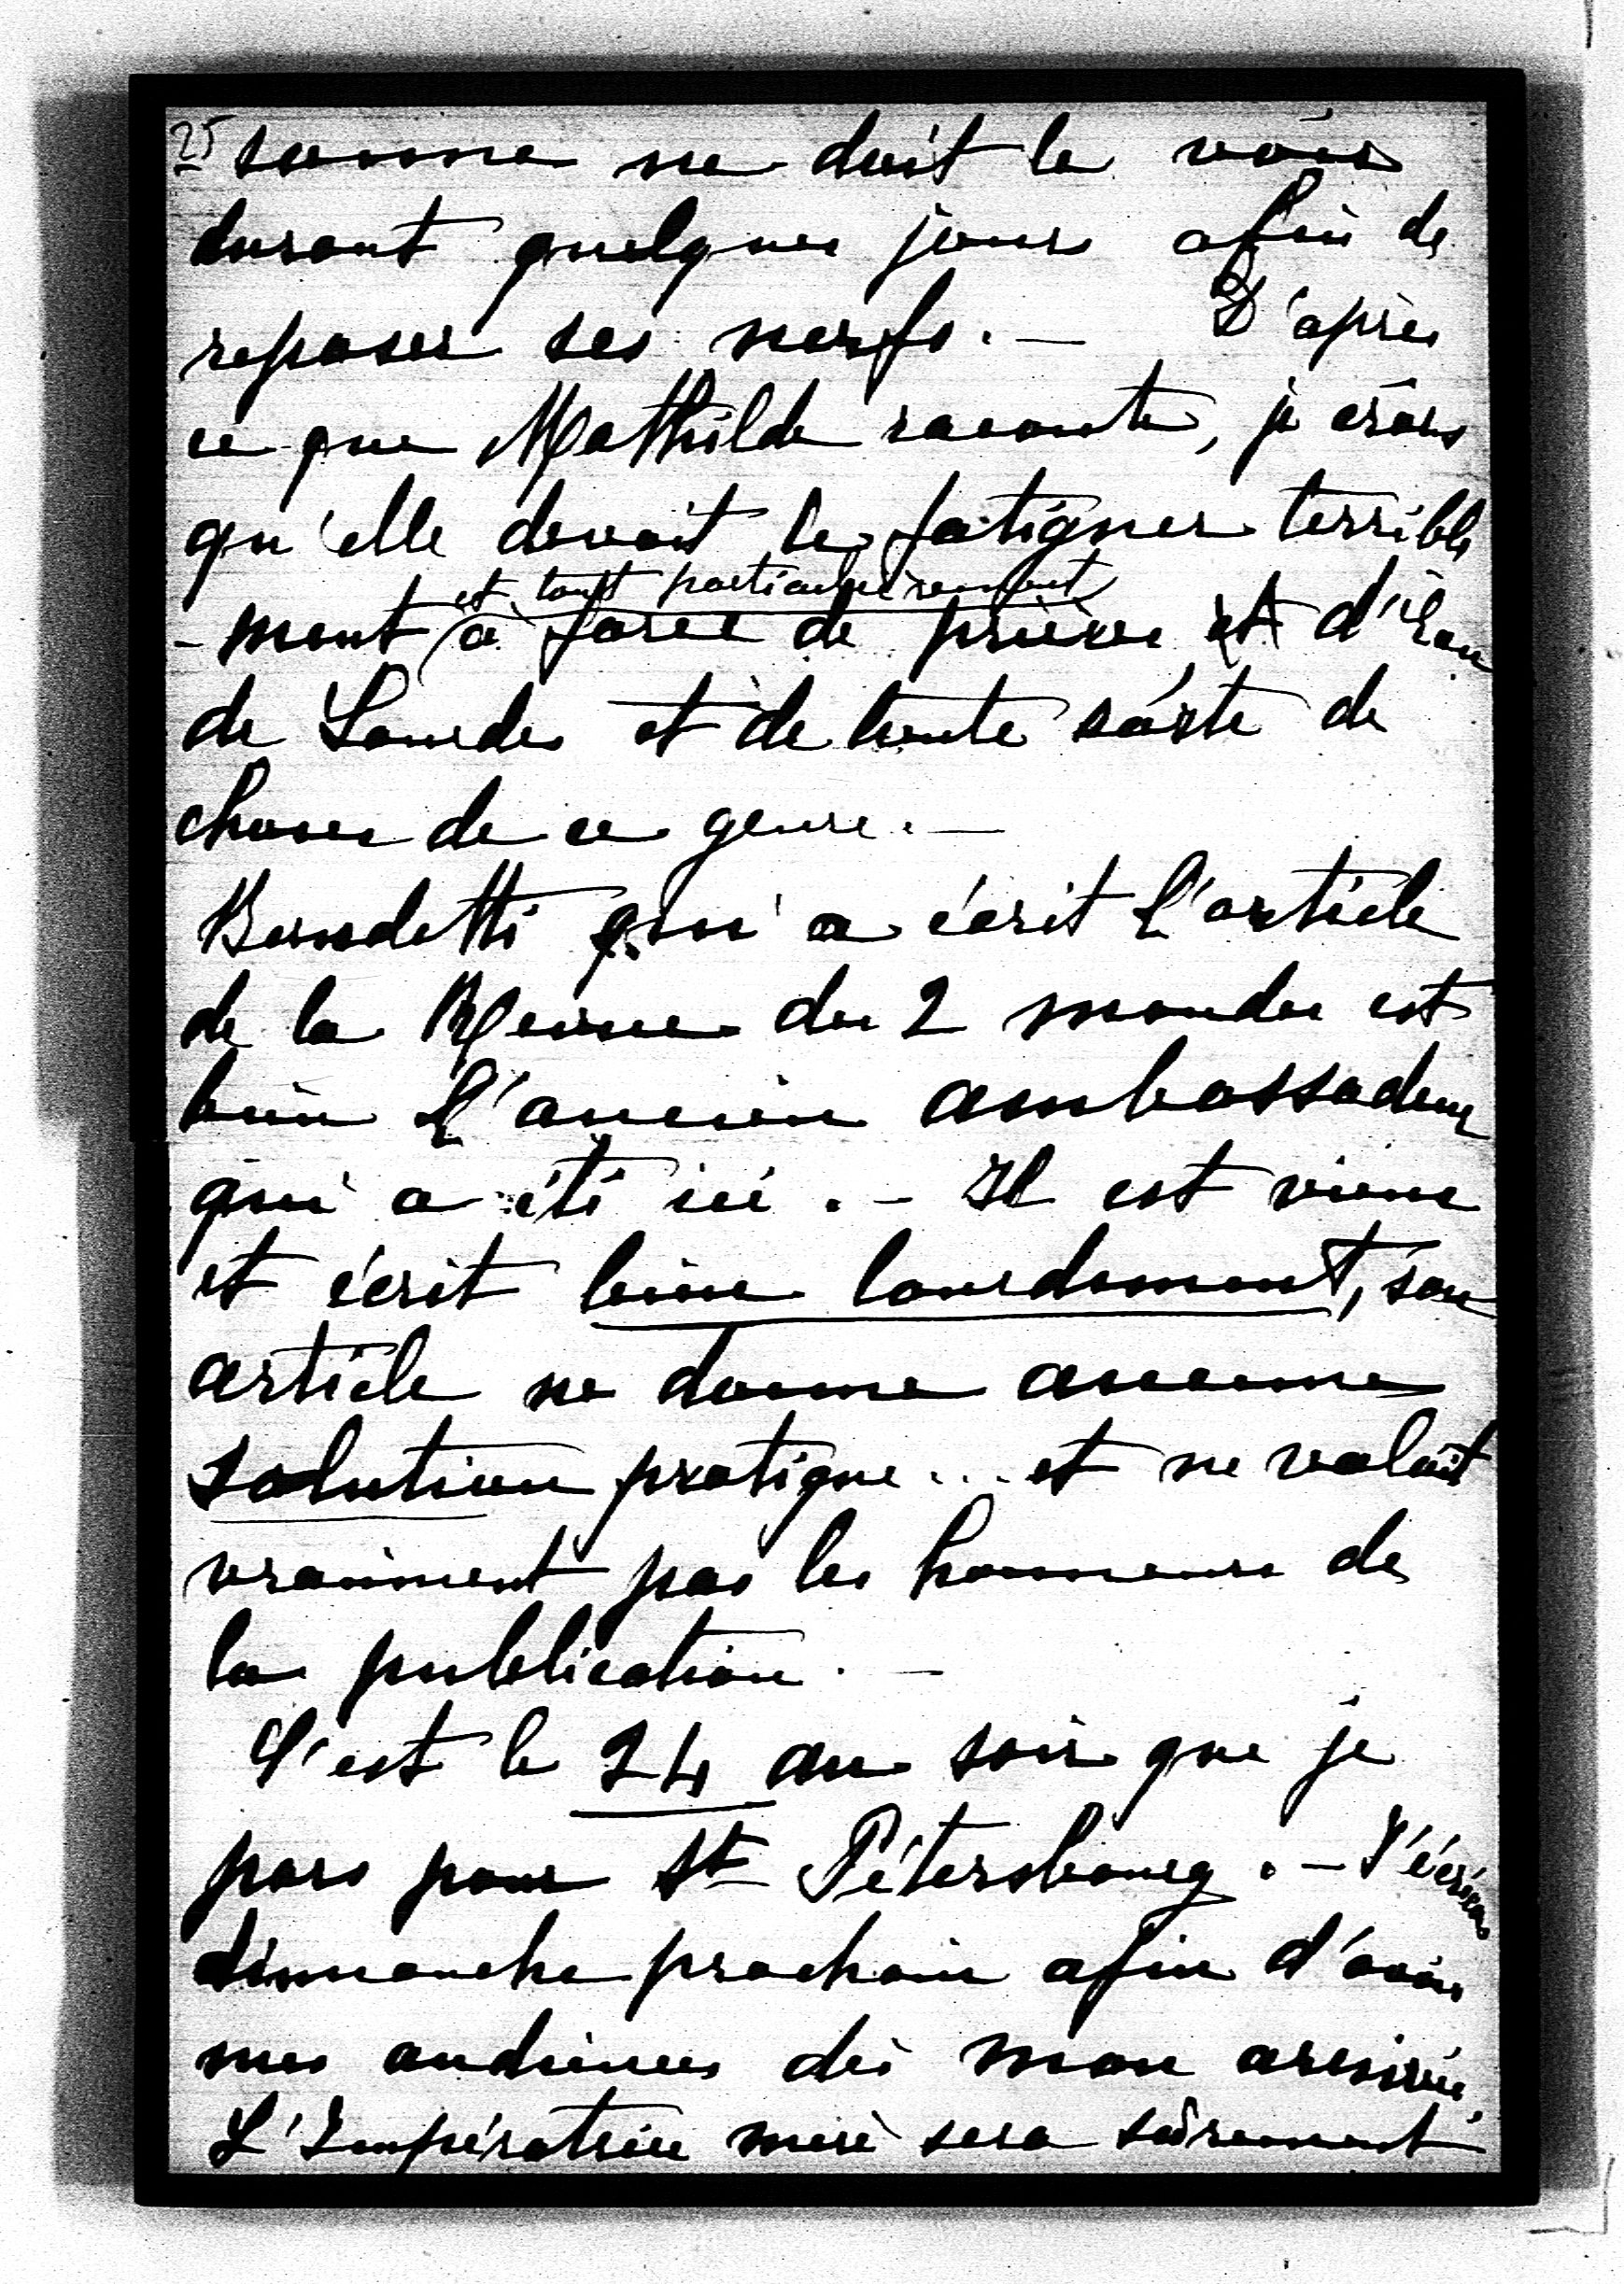 25 sonne ne doit le voir
durant quelques jours afin de
reposer ses nerfs. — D'après
ce que Mathilde raconte, je crois
qu'elle devait le fatiguer terrible
et tout particulièrement
-ment à force de prière et d'eau
de Lourdes et de toute sorte de
choses de ce genre. —
Benedetti qui a écrit l'article
de la Revue des 2 mondes est
bien l'ancien ambassadeur
qui a été ici. — Il est vieux
et écrit bien lourdement, son
article ne donne aucune
solution pratique... et ne valait
vraiment pas les honneurs de
la publication. —
C'est le 24 au soir que je
pars pour St Pétersbourg. — J'écrirai
dimanche prochain afin d'avoir
mes audiences dès mon arrivée.
L'Impératrice mère sera sûrement